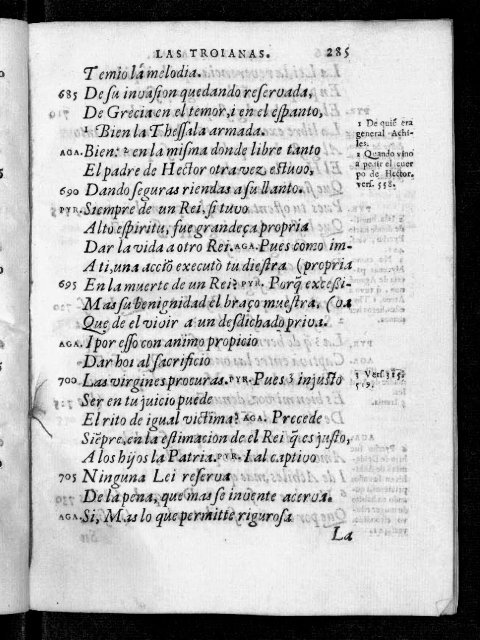 LAS TROIANAS. 285
Temio lá melodia.
685 De su invasion quedando reservada,
De Grecia en el temor, i en el espanto,
¹ Bien la Thessala armada.
AGA. Bien: ² en la misma donde libre tanto
El padre de Hector otra vez estuvo,
690 Dando seguras riendas a su llanto.
PYR. Siempre de un Rei, si tuvo
Alto espiritu, fue grandeça propria
Dar la vida a otro Rei. AGA. Pues como im-
A ti, una acciõ executò tu diestra (propria
695 En la muerte de un Rei? PYR. Porq̃ excessi-
Mas su benignidad el braço muestra. (va
Que de el vivir a un desdichado priva.
AGA. I por esso con animo propicio
Dar hoi al sacrificio
700 Las virgines procuras. PYR. Pues ¹ injusto
Ser en tu juicio puede
El rito de igual victima? AGA. Precede
Siẽpre en la estimacion de el Rei q̃ es justo,
A los hijos la Patria. PYR. I al captivo
705 Ninguna Lei reserva
De la pena, que mas se invente acerva.
AGA. Si, Mas lo que permitte rigurosa
La
1 De quiẽ era
general Achi-
les.
2 Quando vino
a pedir el cuer
po de Hector.
vers. 558.
1 Vers. 315.